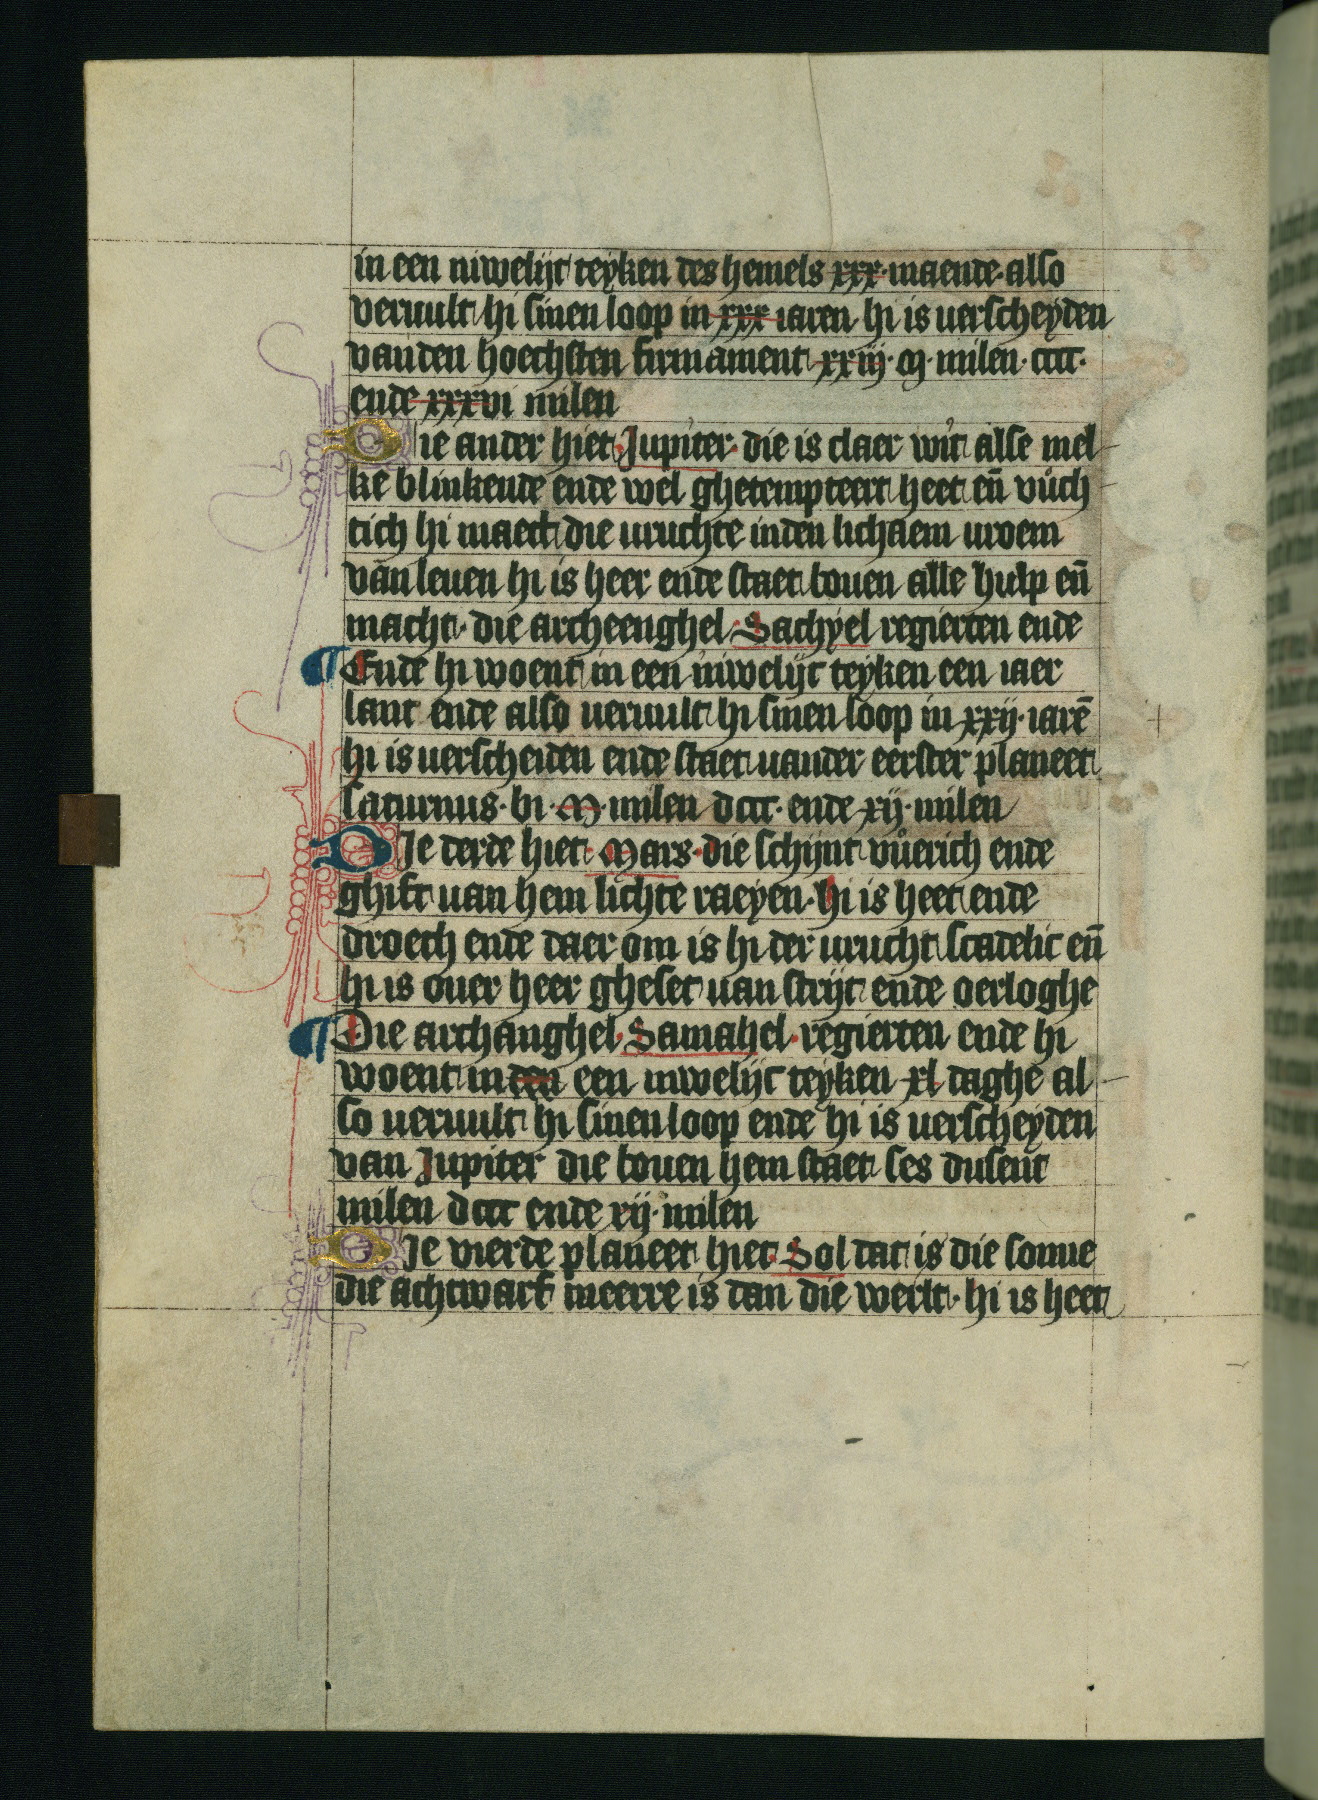 in een niwelijc teyken des hemels xxx· maende· also
veruult hi sinen loop in xxx iaren hi is uerscheyden
vanden hoechsten firmament xxiij· M· milen· ccc·
ende xxxvi milen
Die ander hiet· Jupiter· die is claer wit alse mel
ke blinkende ende wel ghetempteert heet en̄ vůch
tich hi maect die uruchte inden lichaem uroem
van leuen hi is heer ende staet bouen alle hulp en̄
macht· die archeenghel· Sachyel regierten ende
¶ Ende hi woent in een niwelijc teyken een iaer
lanc ende also ueruult hi sinen loop in xxij· iarē
hi is uerscheiden ende staet uander eerster planeet
saturnus· vi· M· milen dccc· ende xij· milen
DJe derde hiet· Mars· die schijnt vůerich ende
ghift uan hem lichte raeyen· hi is heet ende
droech ende daer om is hi der urucht scadelic en̄
hi is ouer heer gheset uan strijt ende oerloghe
¶ Die archanghel· Samahel· regierten ende hi
woent in den een niwelijc teyken xl daghe al
so ueruult hi sinen loop ende hi is uerscheyden
van Jupiter die bouen hem staet ses dusent
milen dccc ende xij· milen
DJe vierde planeet hiet· Sol dat is die sonne
die achtwarf meerre is dan die werlt· hi is heet